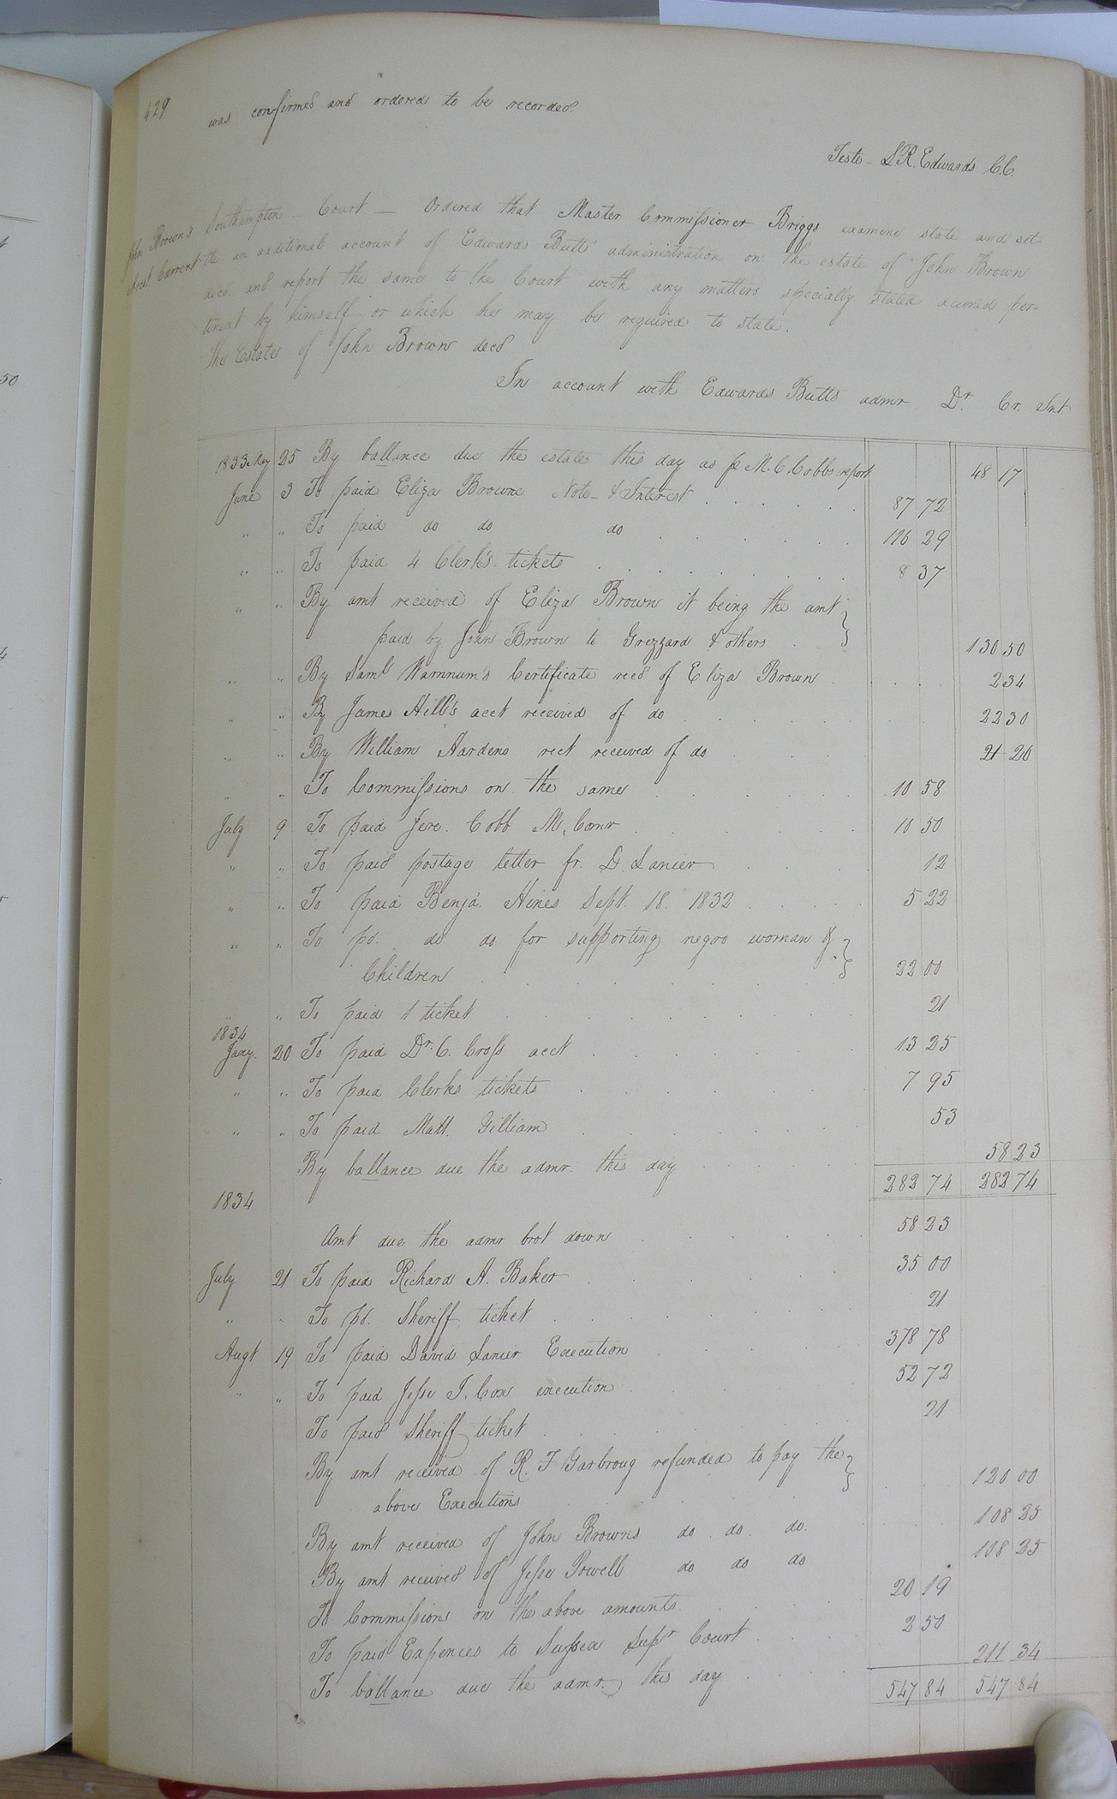 429
was confirmed and ordered to be recorded
Teste - L.R. Edwards C.C.
John Browns
Acct Current
Southampton Court - Ordered that Master Commissioner Briggs examine state and set-
tle an additional account of Edwards Butts administration on the estate of John Brown
decd. and report the same to the Court with any matters specially stated deemed per-
tinent by himself or which he may be required to state.
The Estate of John Brown decd
In account with Edwards Butts admr Dr. Cr. Int
1833 May 25 By ballance due the estate this day as pr M. C. Cobbs report 48 17
June 3 To paid Eliza Browne Note & Interest 87 72
" " To paid do do do 126 29
" " To paid 4 Clerks tickets 8 37
" " By amt received of Eliza Brown it being the amt
paid by John Brown to Grizzard & others 130 50
" " By Saml Warnnum's Certificate recd of Eliza Brown 2 34
" " By James Hill's acct received of do 22 30
" " By William Hardens rect received of do 21 20
" " To Commissions on the same 10 58
July 9 To paid Jere. Cobb M. Comr 10 50
" " To paid postage letter fr. D. Lanier 12
" " To paid Benja. Hines Sept. 18. 1832 5 22
" " To pd. do do for supporting negro woman &
Children 22 00
" " To paid 1 ticket 21
1834
Jany. 20 To paid Dr. C. Cross acct 13 25
" " To paid Clerks tickets 7 95
" " To paid Matt. Gilliam 53
By ballance due the admr. this day 58 23
282 74 282 74
1834
Amt due the admr brot down 58 23
July 21 To paid Richard A. Baker 35 00
" " To pd. Sheriff ticket 21
Augt 19 To paid David Lanier Execution 378 78
" " To paid Jesse J. Cox execution 52 72
To paid Sheriff ticket 21
By amt received of R. F Yarbroug refunded to pay the
above Executions 120 00
By amt received of John Browns do do. do. 108 25
By amt received of Jesse Powell do do do 108 25
To Commissions on the above amounts 20 19
To paid Expences to Sussex Supr Court 2 50
To ballance due the admr. this day 211 34
547 84 547 84